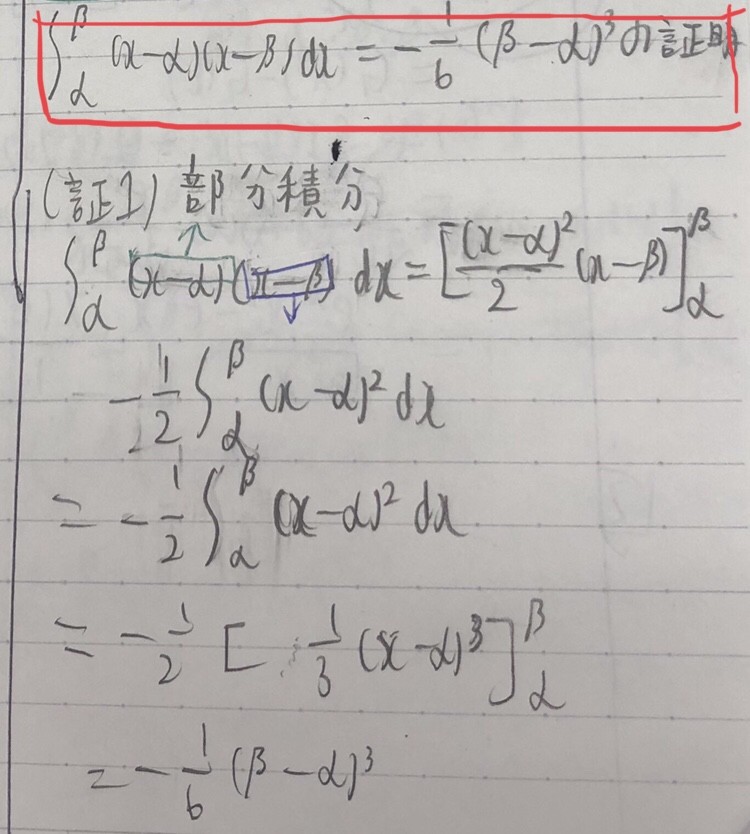 ∫_α^β (x-α)(x-β)dx = -1/6 (β-α)³の証明
(証1) 部分積分
∫_α^β (x-α)(x-β) dx = [(x-α)²/2 (x-β)]_α^β
-1/2 ∫_α^β (x-α)² dx
= -1/2 ∫_α^β (x-α)² dx
= -1/2 [1/3 (x-α)³]_α^β
= -1/6 (β-α)³